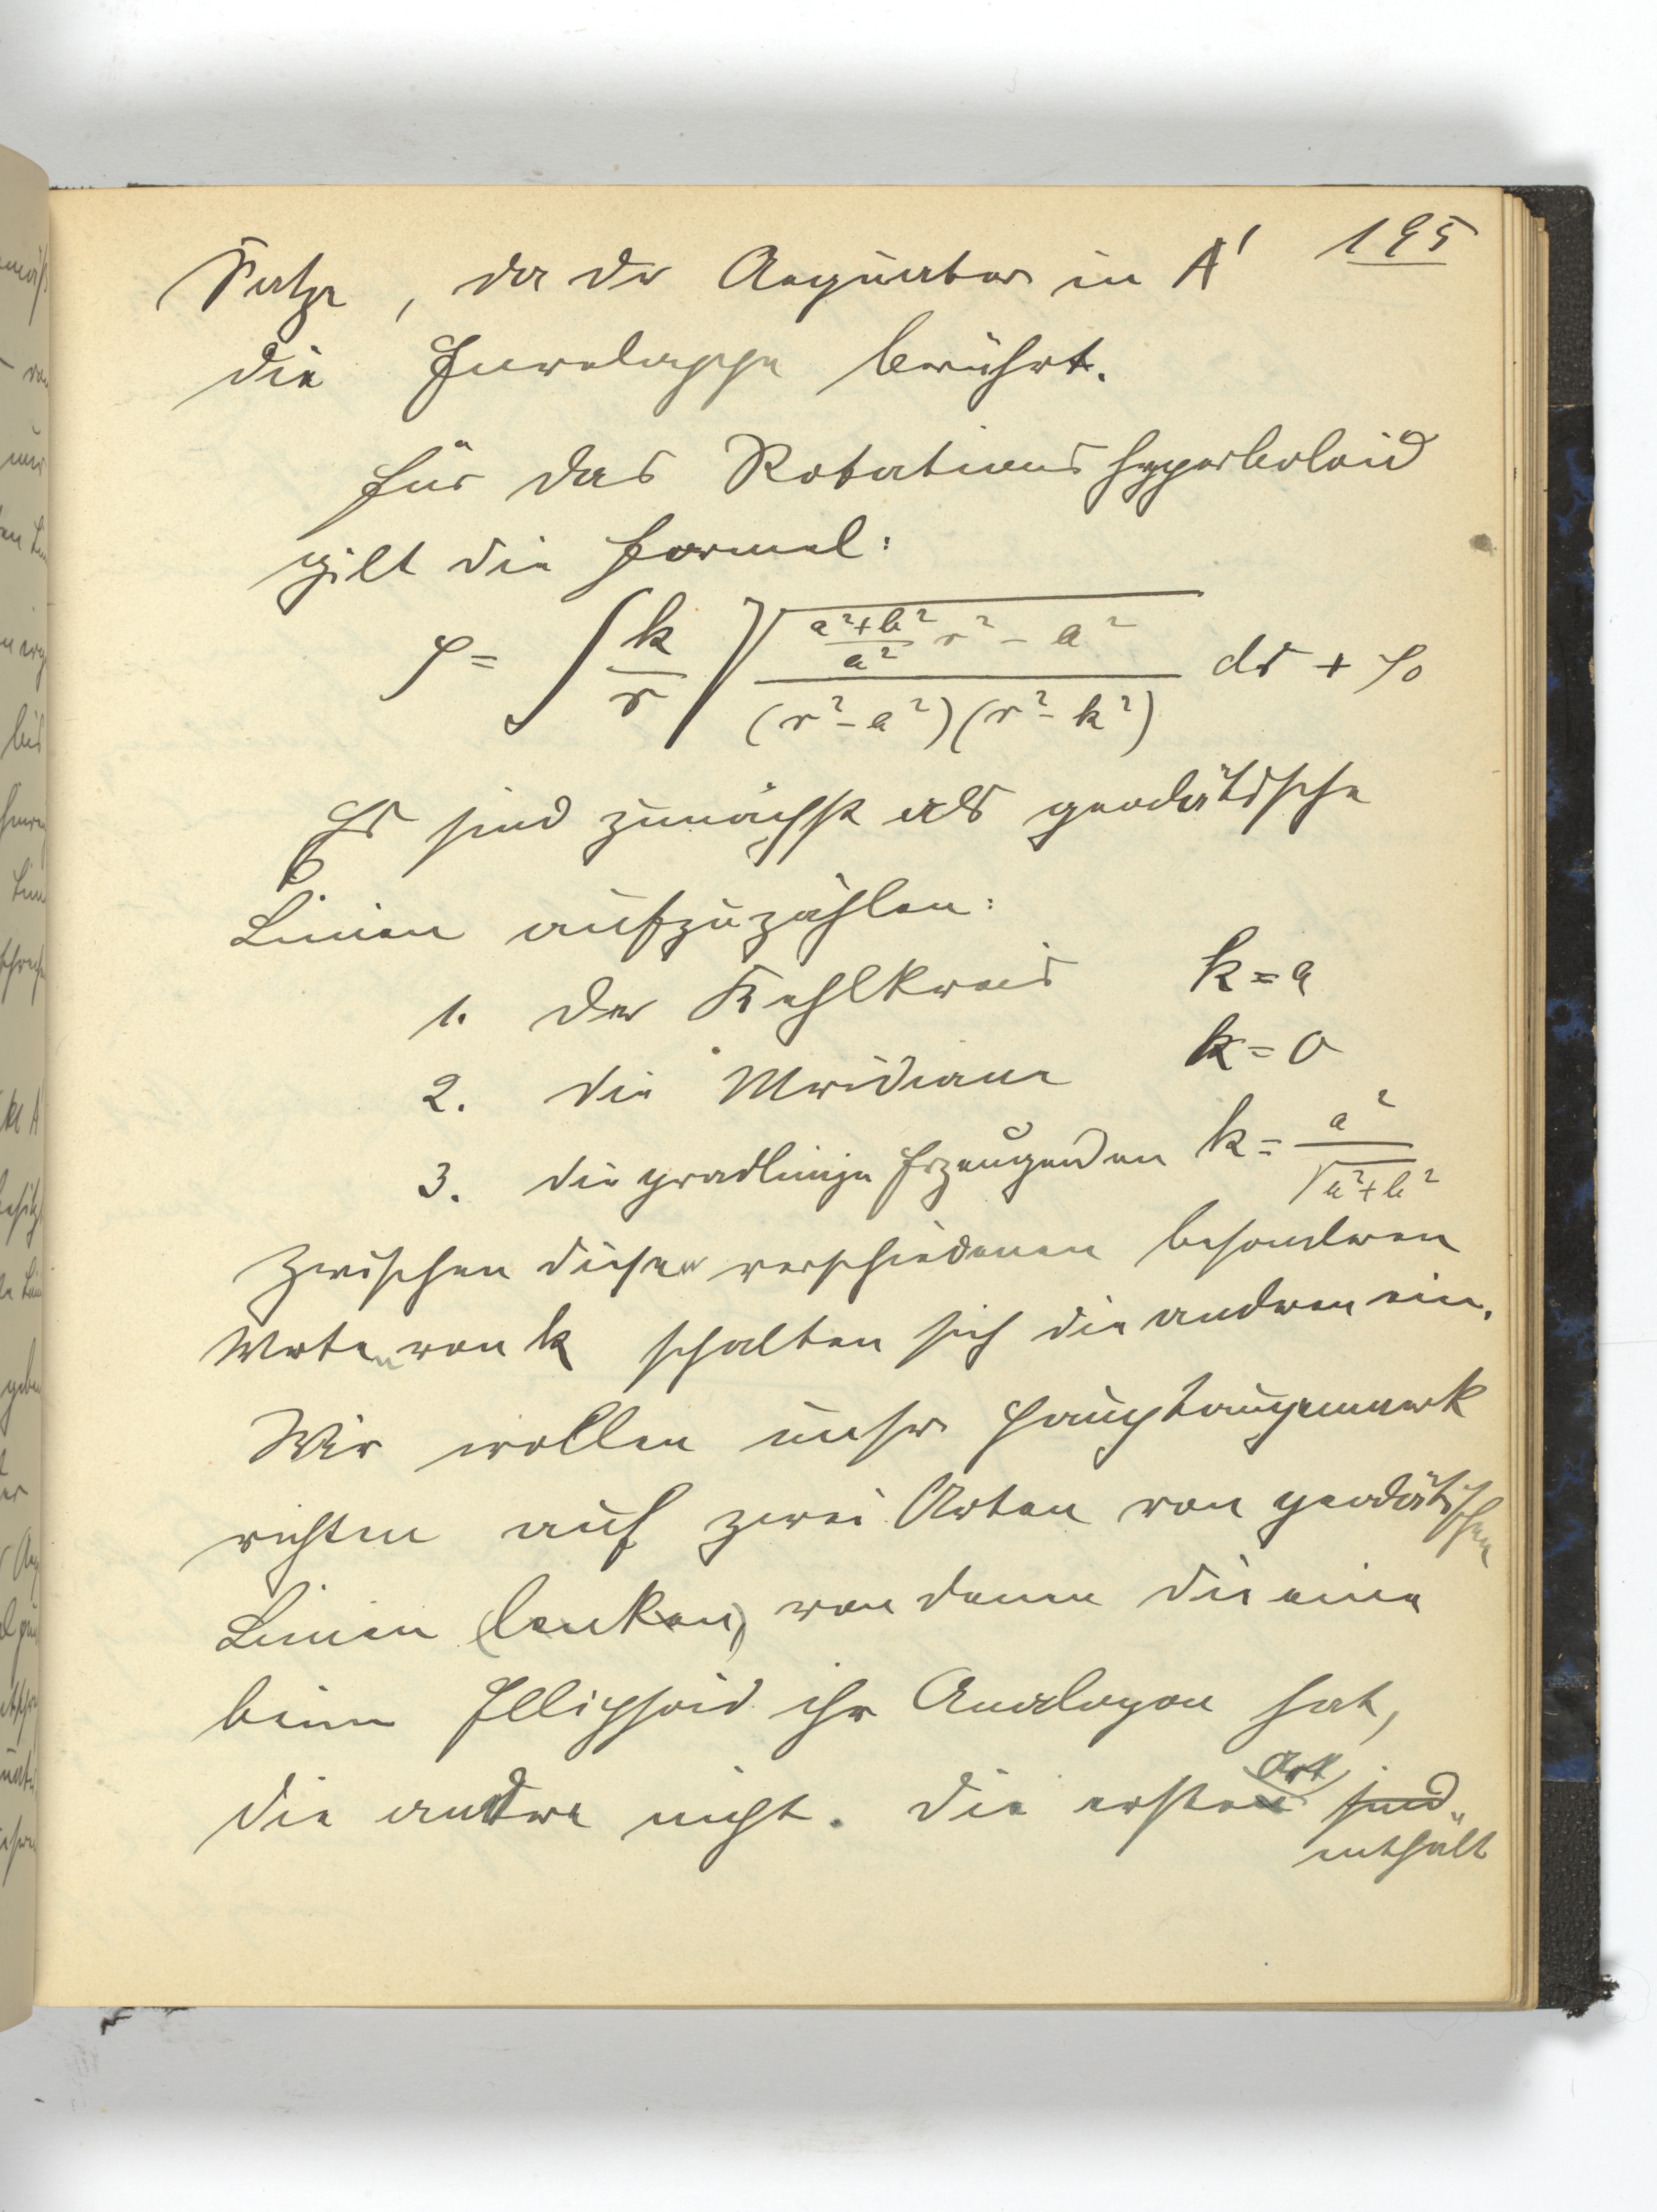 195
Satze, da der Aequator in A'
die Enveloppe berührt.
Für das Rotationshyperboloid
gilt die Formel:
φ = ∫ k/r √( ((a²+b²)/a² r² - a²) / ((r²-a²)(r²-k²)) ) dr + φ₀
Es sind zunächst als geodätische
Linien aufzuzählen:
1. der Kehlkreis k = a
2. die Meridiane k = 0
3. die gradlinige Erzeugenden k = a²/√(a²+b²)
Zwischen diesen verschiedenen besonderen
Werten von k schalten sich die anderen ein.
Wir wollen unser Hauptaugenmerk
richten auf zwei Arten von geodätischen
Linien (lenken), von denen die eine
beim Ellipsoid ihr Analogon hat,
die andere nicht. Die ersten Art sind
enthält